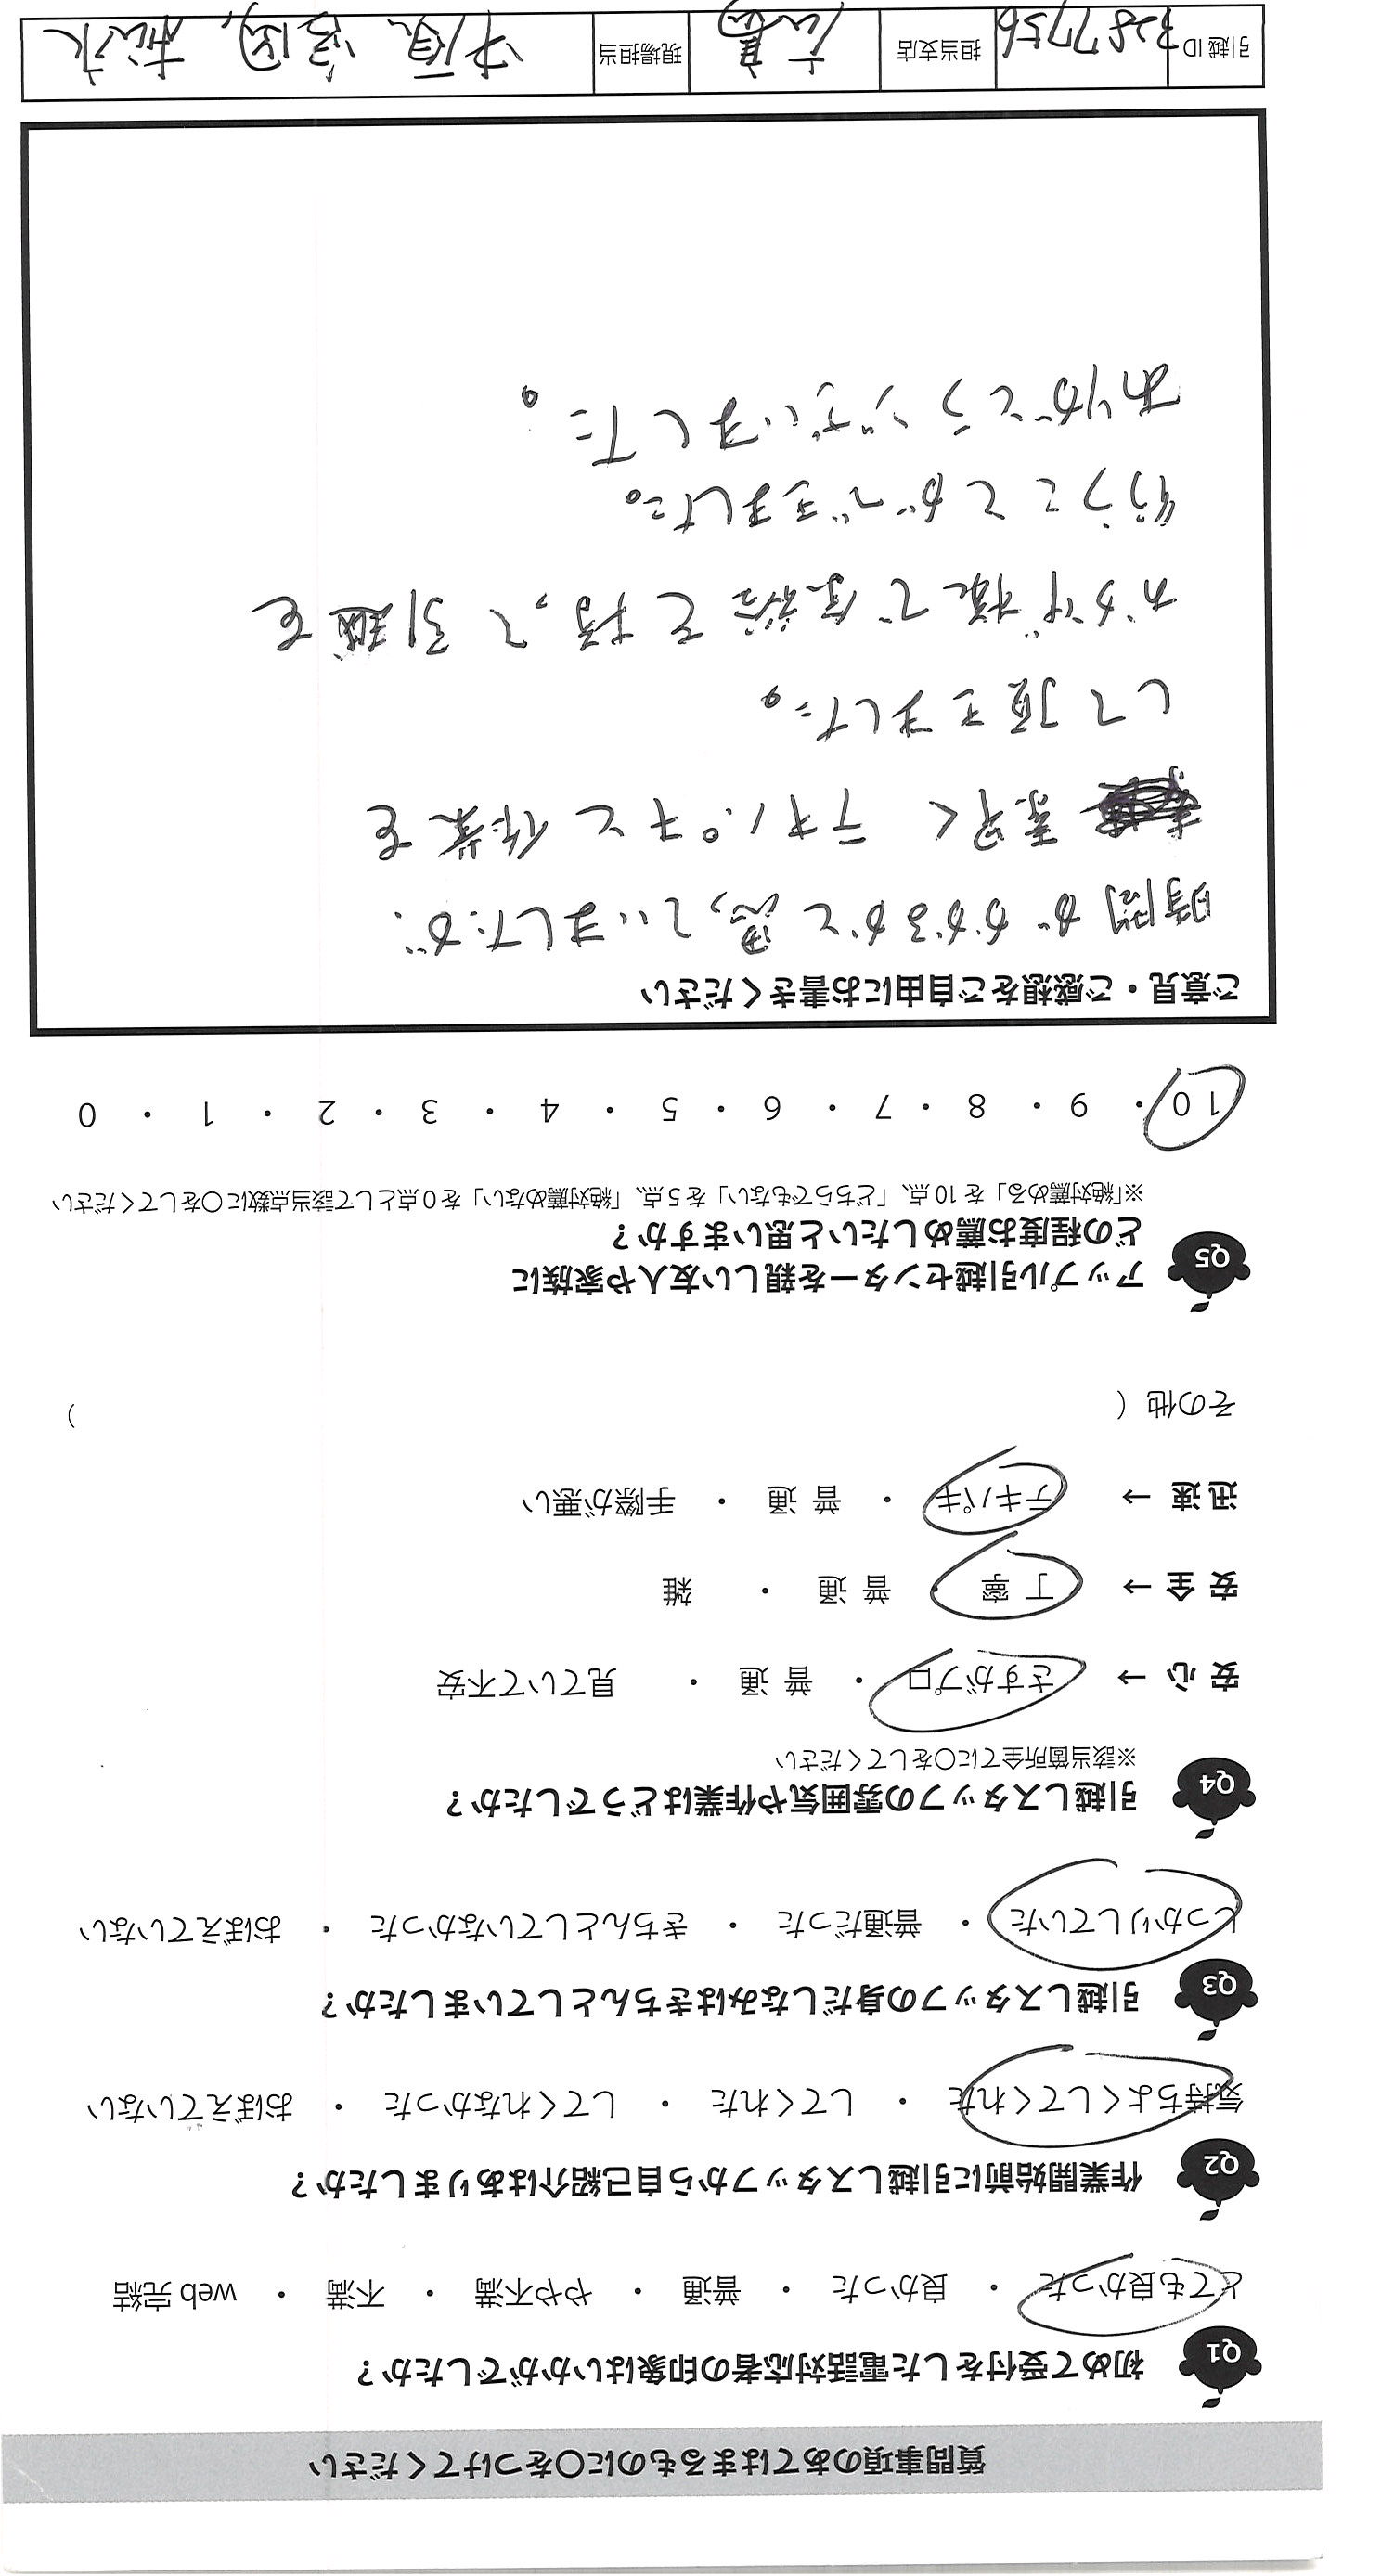 質問事項のあてはまるものに〇をつけてください
Q1 初めて受付をした電話対応者の印象はいかがでしたか？
とても良かった ・ 良かった ・ 普通 ・ やや不満 ・ 不満 ・ web 完結
Q2 作業開始前に引越しスタッフから自己紹介はありましたか？
気持ちよくしてくれた ・ してくれた ・ してくれなかった ・ おぼえていない
Q3 引越しスタッフの身だしなみはきちんとしていましたか？
しっかりしていた ・ 普通だった ・ きちんとしていなかった ・ おぼえていない
Q4 引越しスタッフの雰囲気や作業はどうでしたか？
※該当箇所全てに〇をしてください
安 心 → さすがプロ ・ 普 通 ・ 見ていて不安
安 全 → 丁 寧 ・ 普 通 ・ 雑
迅 速 → テキパキ ・ 普 通 ・ 手際が悪い
その他（ ）
Q5 アップル引越センターを親しい友人や家族に
どの程度お薦めしたいと思いますか？
※「絶対薦める」を 10 点、「どちらでもない」を 5 点、「絶対薦めない」を 0 点として該当点数に〇をしてください
10 ・ 9 ・ 8 ・ 7 ・ 6 ・ 5 ・ 4 ・ 3 ・ 2 ・ 1 ・ 0
ご意見・ご感想をご自由にお書きください
時間がかかるかと思っていましたが、
素早く テキパキと作業を
して頂きました。
おかげ様で余裕を持って引越を
行うことができました。
ありがとうございました。
引越 ID 3287756 担当支店 広島 現場担当 中原、宮園、松永